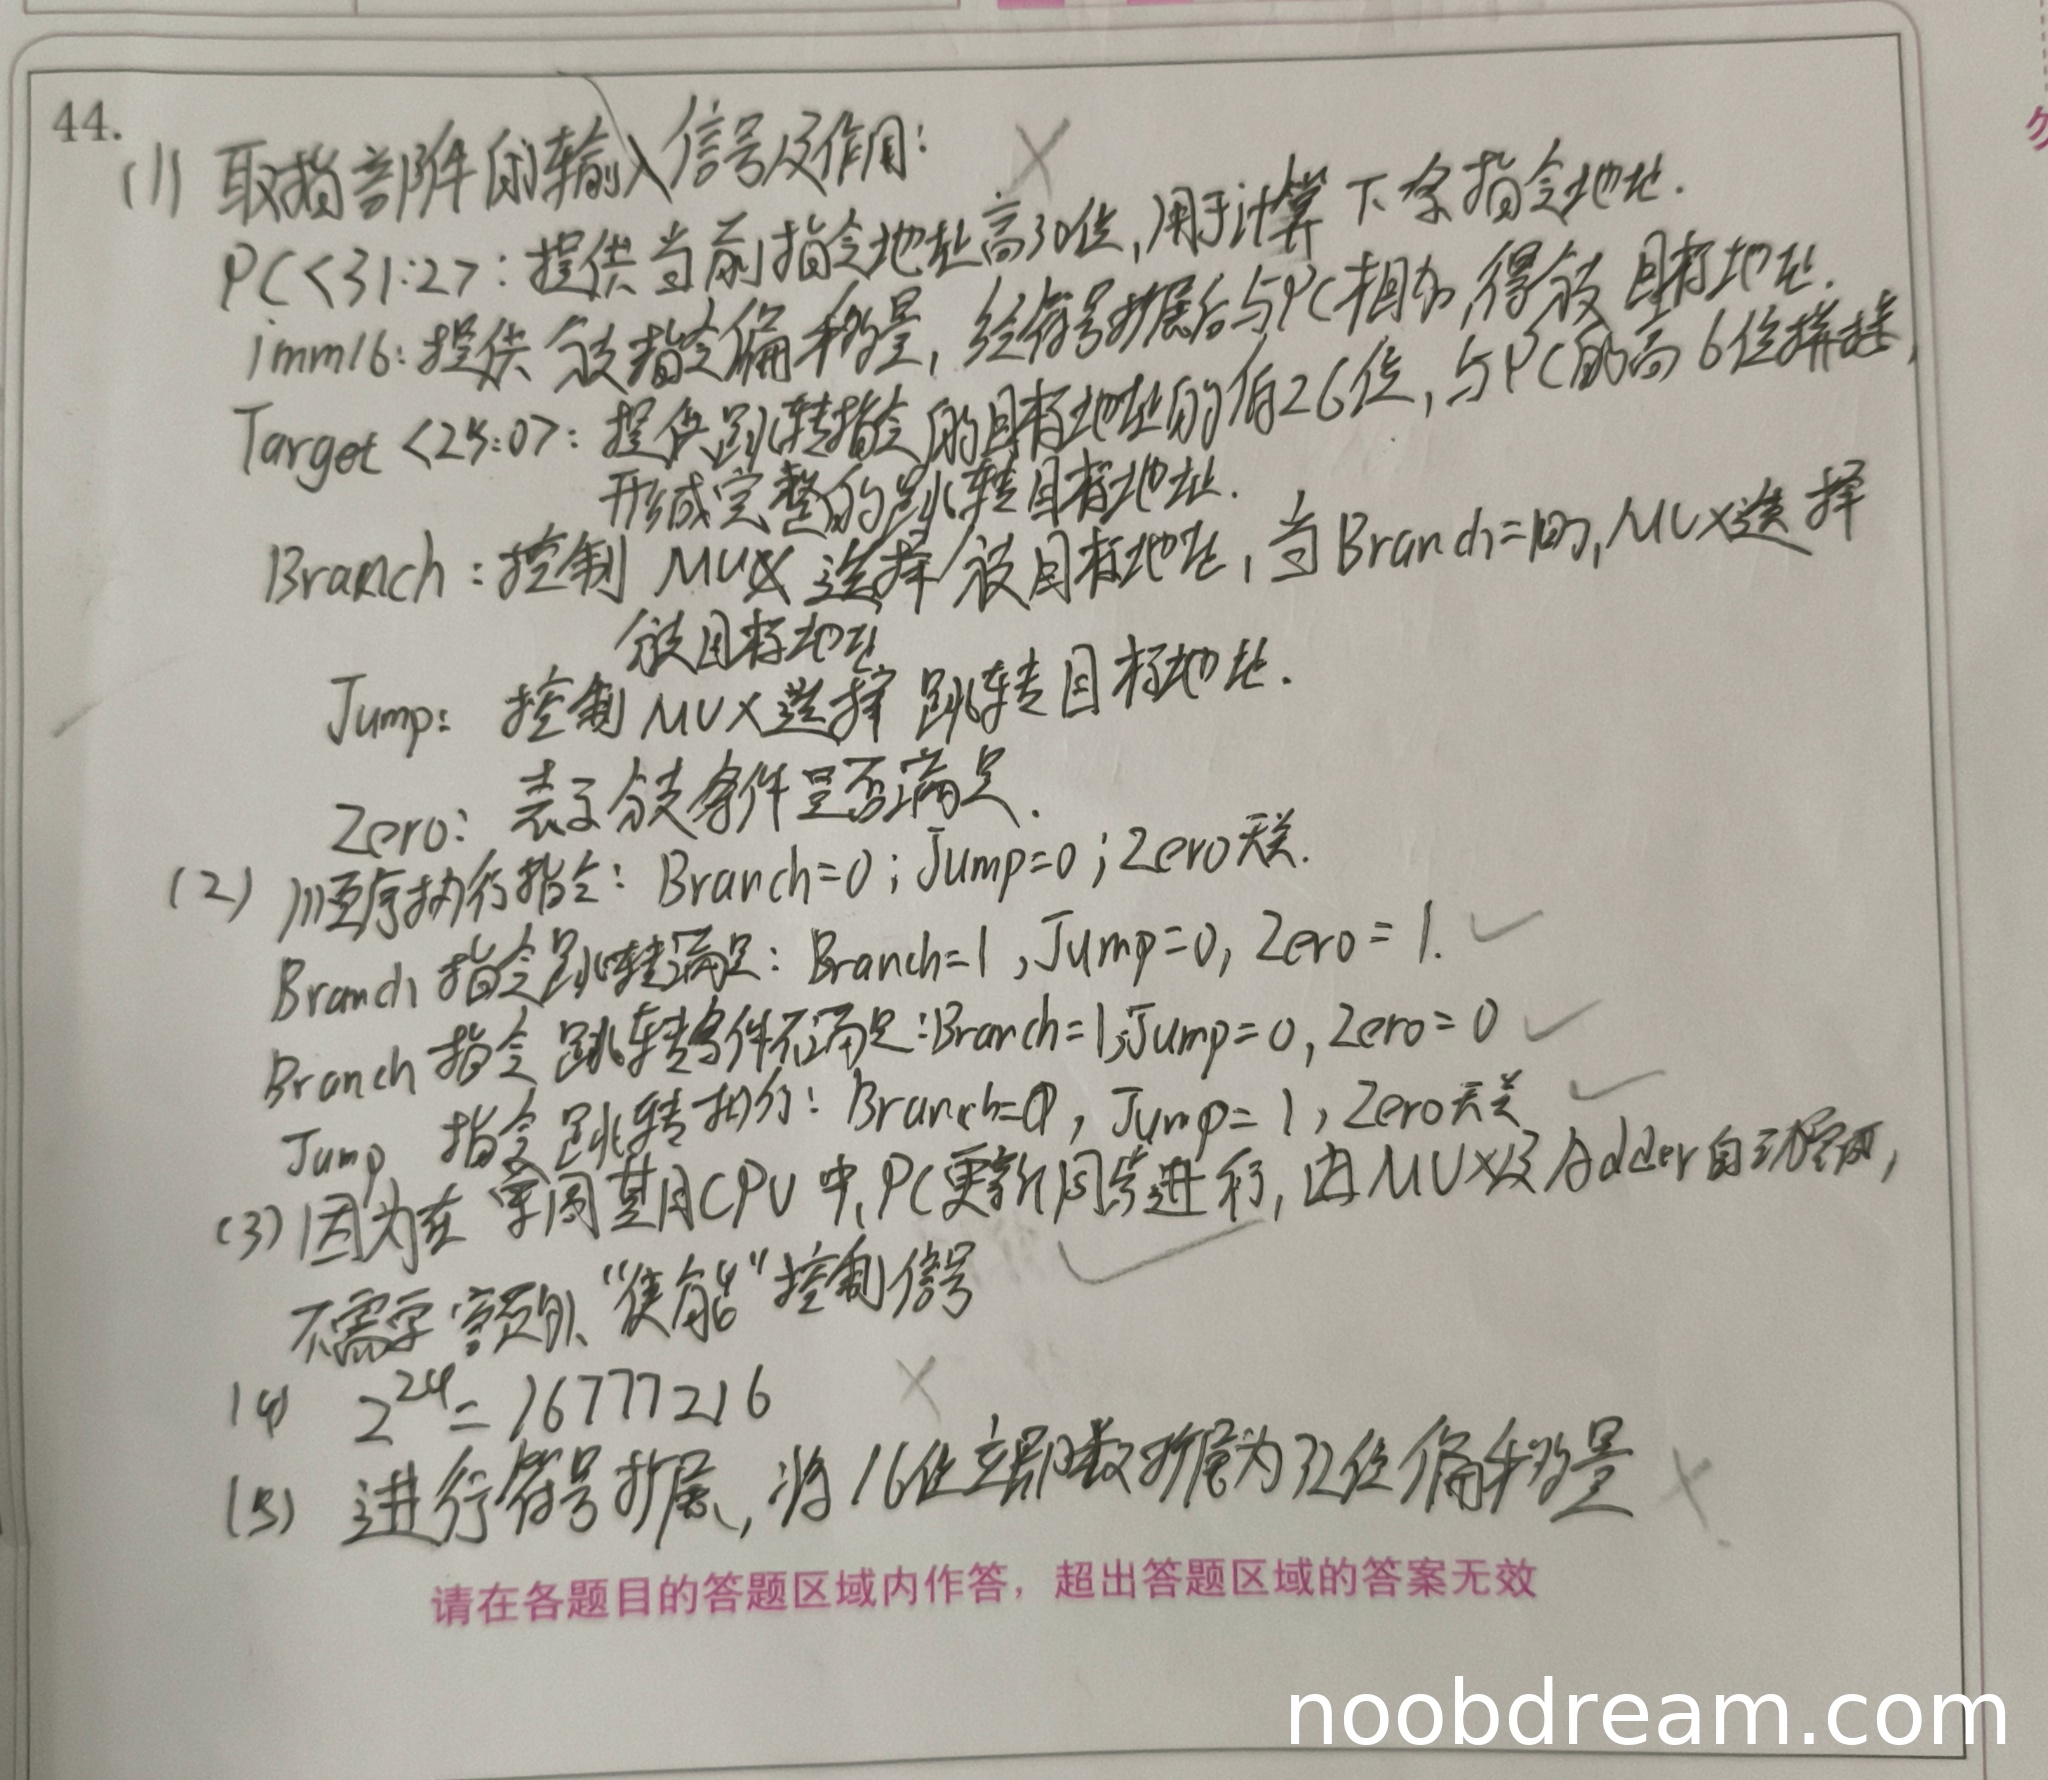 44.
(1) 取指部件的输入信号及作用:
PC<31:2>: 提供当前指令地址高30位,用于计算下条指令地址.
imm16: 提供分支指令偏移量, 经符号扩展后与PC相加,得分支目标地址.
Target <25:0>: 提供跳转指令的目标地址的低26位, 与PC的高6位拼接,
形成完整的跳转目标地址.
Branch: 控制 MUX 选择分支目标地址, 当Branch=1时, MUX选择
分支目标地址
Jump: 控制MUX选择 跳转目标地址.
Zero: 表示分支条件是否满足.
(2) 顺序执行指令: Branch=0; Jump=0; Zero无关.
Branch 指令跳转满足: Branch=1, Jump=0, Zero=1.
Branch 指令跳转条件不满足: Branch=1, Jump=0, Zero=0
Jump 指令跳转执行: Branch=0, Jump=1, Zero无关
(3) 因为在单周期CPU中,PC更新同步进行, 由MUX及Adder自动完成,
不需要额外"使能"控制信号
(4) 2^24 = 16777216
(5) 进行符号扩展, 将16位立即数扩展为32位偏移量
请在各题目的答题区域内作答，超出答题区域的答案无效
noobdream.com